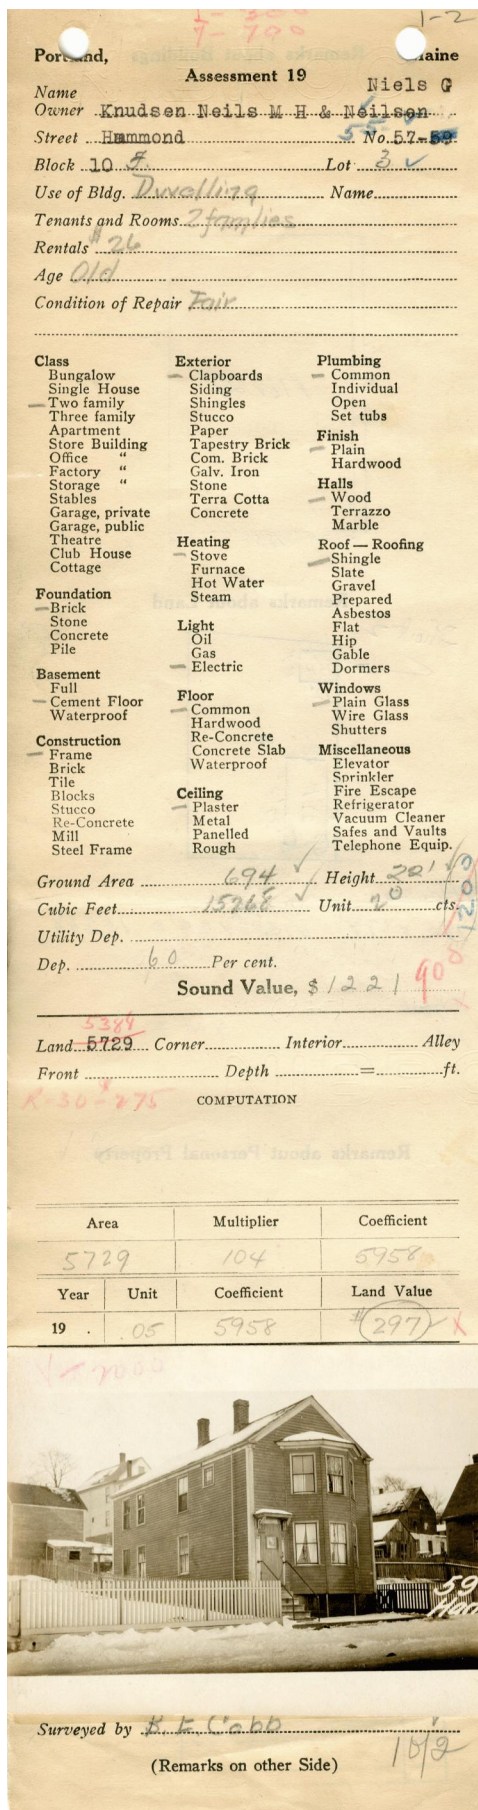 1-300
7-700
1-2
Portland, Maine
Assessment 19
Name Niels G
Owner Knudsen Neils M H & Neilsen
Street Hammond 55- No. 57-59
Block 10 F Lot 3 ✓
Use of Bldg. Dwelling Name
Tenants and Rooms 2 families
Rentals $26
Age Old
Condition of Repair Fair
Class
Bungalow
Single House
Two family
Three family
Apartment
Store Building
Office "
Factory "
Storage "
Stables
Garage, private
Garage, public
Theatre
Club House
Cottage
Foundation
Brick
Stone
Concrete
Pile
Basement
Full
Cement Floor
Waterproof
Construction
Frame
Brick
Tile
Blocks
Stucco
Re-Concrete
Mill
Steel Frame
Exterior
Clapboards
Siding
Shingles
Stucco
Paper
Tapestry Brick
Com. Brick
Galv. Iron
Stone
Terra Cotta
Concrete
Heating
Stove
Furnace
Hot Water
Steam
Light
Oil
Gas
Electric
Floor
Common
Hardwood
Re-Concrete
Concrete Slab
Waterproof
Ceiling
Plaster
Metal
Panelled
Rough
Plumbing
Common
Individual
Open
Set tubs
Finish
Plain
Hardwood
Halls
Wood
Terrazzo
Marble
Roof — Roofing
Shingle
Slate
Gravel
Prepared
Asbestos
Flat
Hip
Gable
Dormers
Windows
Plain Glass
Wire Glass
Shutters
Miscellaneous
Elevator
Sprinkler
Fire Escape
Refrigerator
Vacuum Cleaner
Safes and Vaults
Telephone Equip.
Ground Area 694 ✓ Height 22'
Cubic Feet 15268 ✓ Unit 20 cts.
1203
Utility Dep.
Dep. 60 Per cent.
Sound Value, $ 1221 900
5384
Land 5729 Corner Interior Alley
Front Depth = ft.
R-30-275
COMPUTATION
Area Multiplier Coefficient
5729 104 5958
Year Unit Coefficient Land Value
19 . .05 5958 $297 X
59
Surveyed by B. E. Cobb
(Remarks on other Side)
10/2